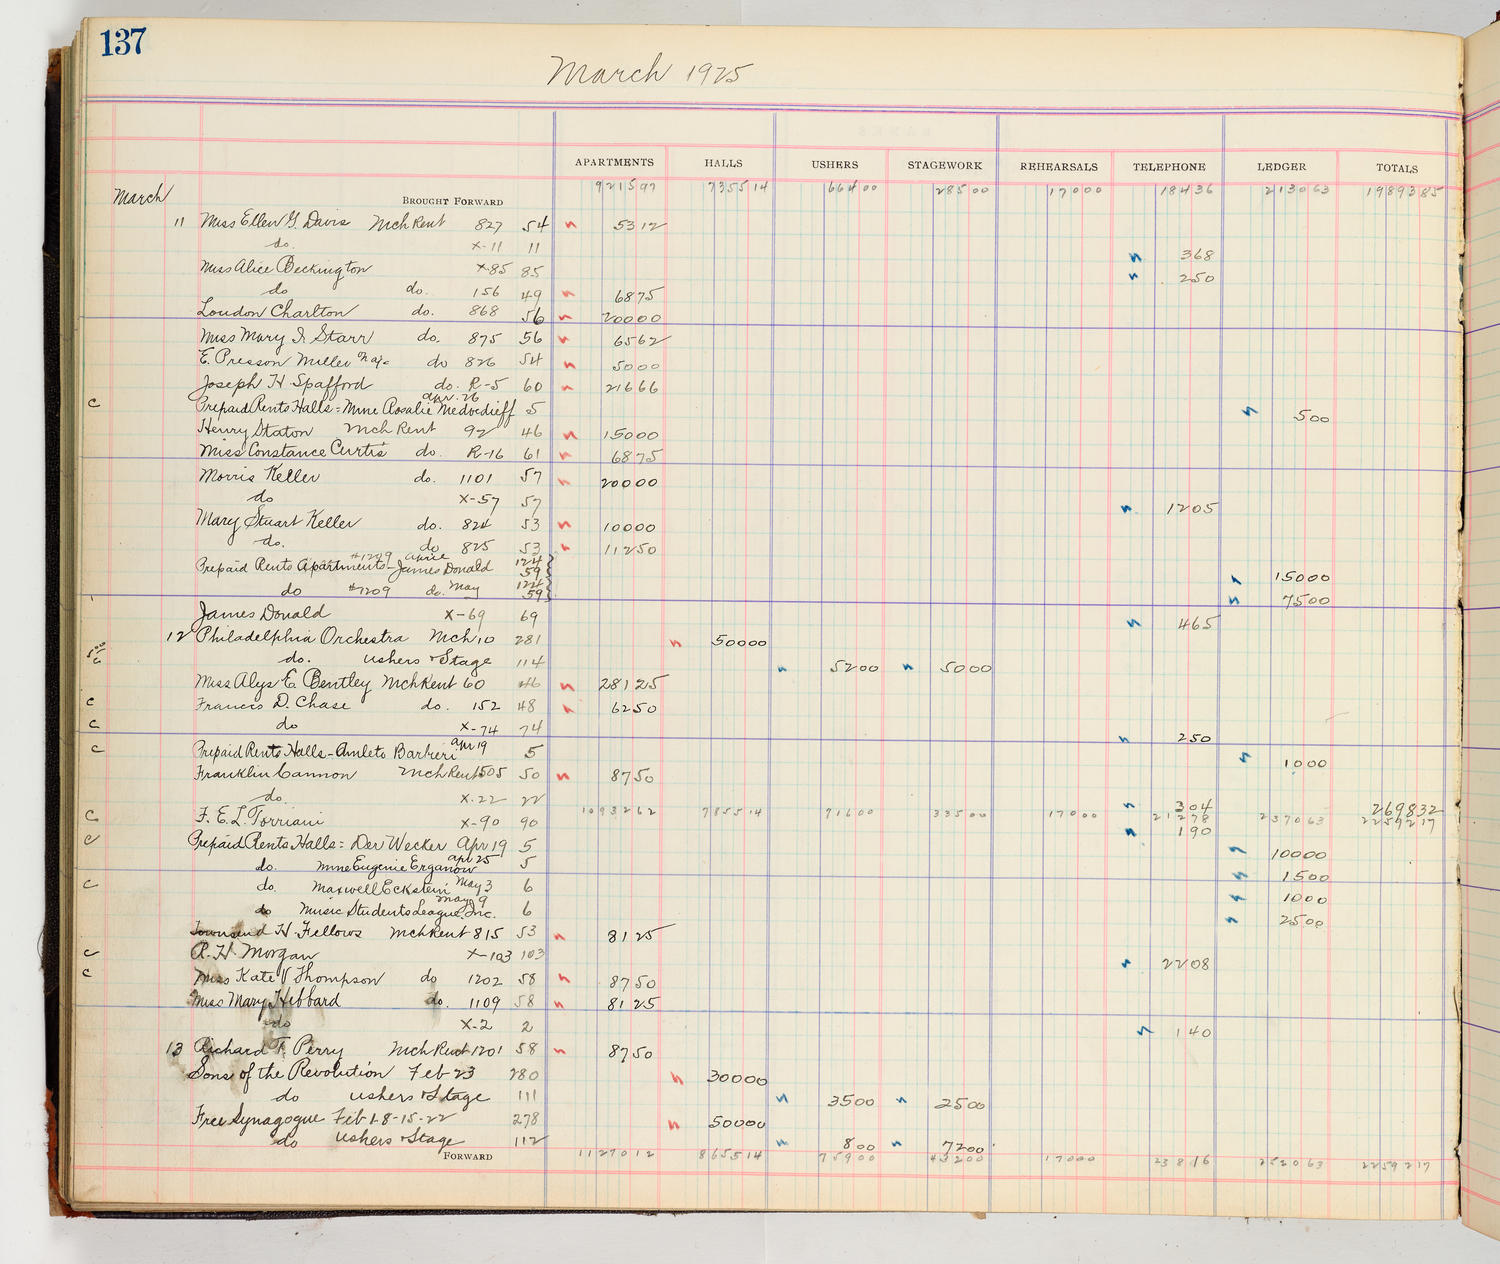 137
March 1925
APARTMENTS HALLS USHERS STAGEWORK REHEARSALS TELEPHONE LEDGER TOTALS
March BROUGHT FORWARD 921597 735514 66400 28500 17000 18436 213063 1989385
11 Miss Ellen G. Davis Mch Rent 827 54 5312
do. X-11 11 368
Miss Alice Beckington X-85 85 250
do do. 156 49 6875
Loudon Charlton do. 868 56 20000
Miss Mary I. Starr do. 875 56 6562
E. Presson Miller do 826 54 5000
Joseph H. Spafford do. R-5 60 21666
Apr. 26
c Prepaid Rents Halls = Mme Rosalie Medvedieff 5 500
Henry Staton Mch Rent 92 46 15000
Miss Constance Curtis do. R-16 61 6875
Morris Keller do. 1101 57 20000
do X-57 57 1205
Mary Stuart Keller do. 824 53 10000
do. do 825 53 11250
Prepaid Rents Apartments - James Donald #1209 April 124 59 15000
do #1209 do. May 124 59 7500
James Donald X-69 69 465
12 Philadelphia Orchestra Mch 10 281 50000
do. ushers + Stage 114 5200 5000
Miss Alys E. Bentley Mch Rent 60 46 28125
c Francis D. Chase do. 152 48 6250
c do X-74 74 250
c Prepaid Rents Halls - Amleto Barbieri Apr 19 5 1000
Franklin Cannon Mch Rent 505 50 8750
do. X-22 22 304 269832
1093262 785514 71600 33500 17000 21278 237063 2259217
c F. E. L. Torriani X-90 90 190
c Prepaid Rents Halls = Der Wecker Apr 19 5 10000
do. Mme Eugenie Erganow Apr 25 5 1500
c do. Maxwell Eckstein May 3 6 1000
do Music Students League, Inc. May 9 6 2500
Townsend H. Fellows Mch Rent 815 53 8125
c R. H. Morgan X-103 103 2208
c Miss Kate V. Thompson do 1202 58 8750
Miss Mary Hibbard do. 1109 58 8125
do X-2 2 140
13 Richard T. Perry Mch Rent 1201 58 8750
Sons of the Revolution Feb 23 280 30000
do ushers + Stage 111 3500 2500
Free Synagogue Feb 1-8-15-22 278 50000
do ushers + Stage 112 800 7200
FORWARD 1127012 865514 75900 43200 17000 23816 252063 2259217